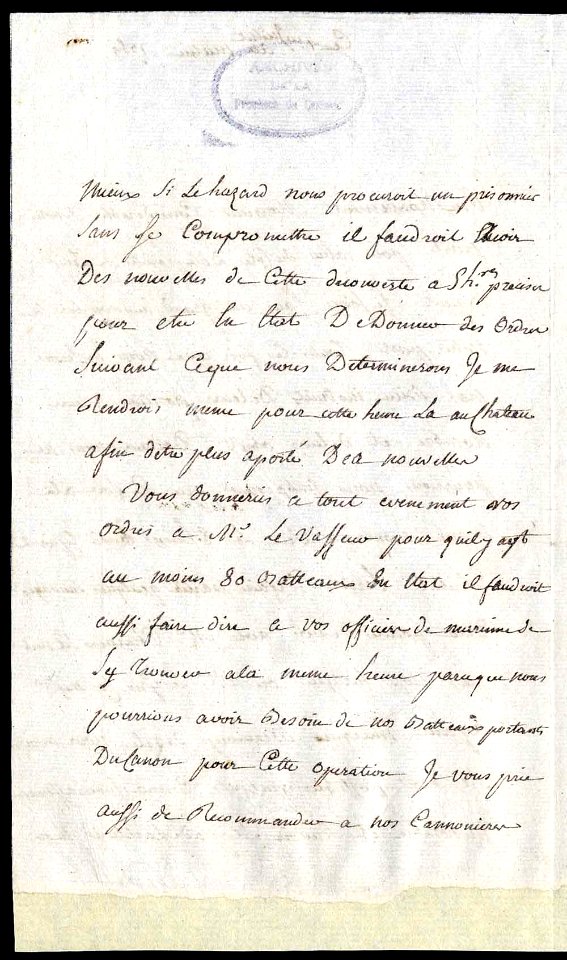 ARCHIVES
DE LA
Province de Quebec
mieux si Le hazard nous procuroit un prisonnier
sans se Compromettre il faudroit avoir
Des nouvelles de Cette decouverte a 5h.res precises
pour etre En Etat De Donner des Ordres
Suivant Ceque nous Determinerons Je me
Rendrois meme pour cette heure La au Chateau
afin detre plus aporté Des nouvelles
Vous donneres a tout evenement vos
ordres a Mr. Le Vasseur pour quil y ayt
au moins 80 Batteaux En Etat il faudroit
aussi faire dire a vos officiers de marinne de
Sy trouver a la meme heure parceque nous
pourrions avoir Besoin de nos Batteaux portants
Du Canon pour Cette operation Je vous prie
aussi de Recommander a nos Cannoniers